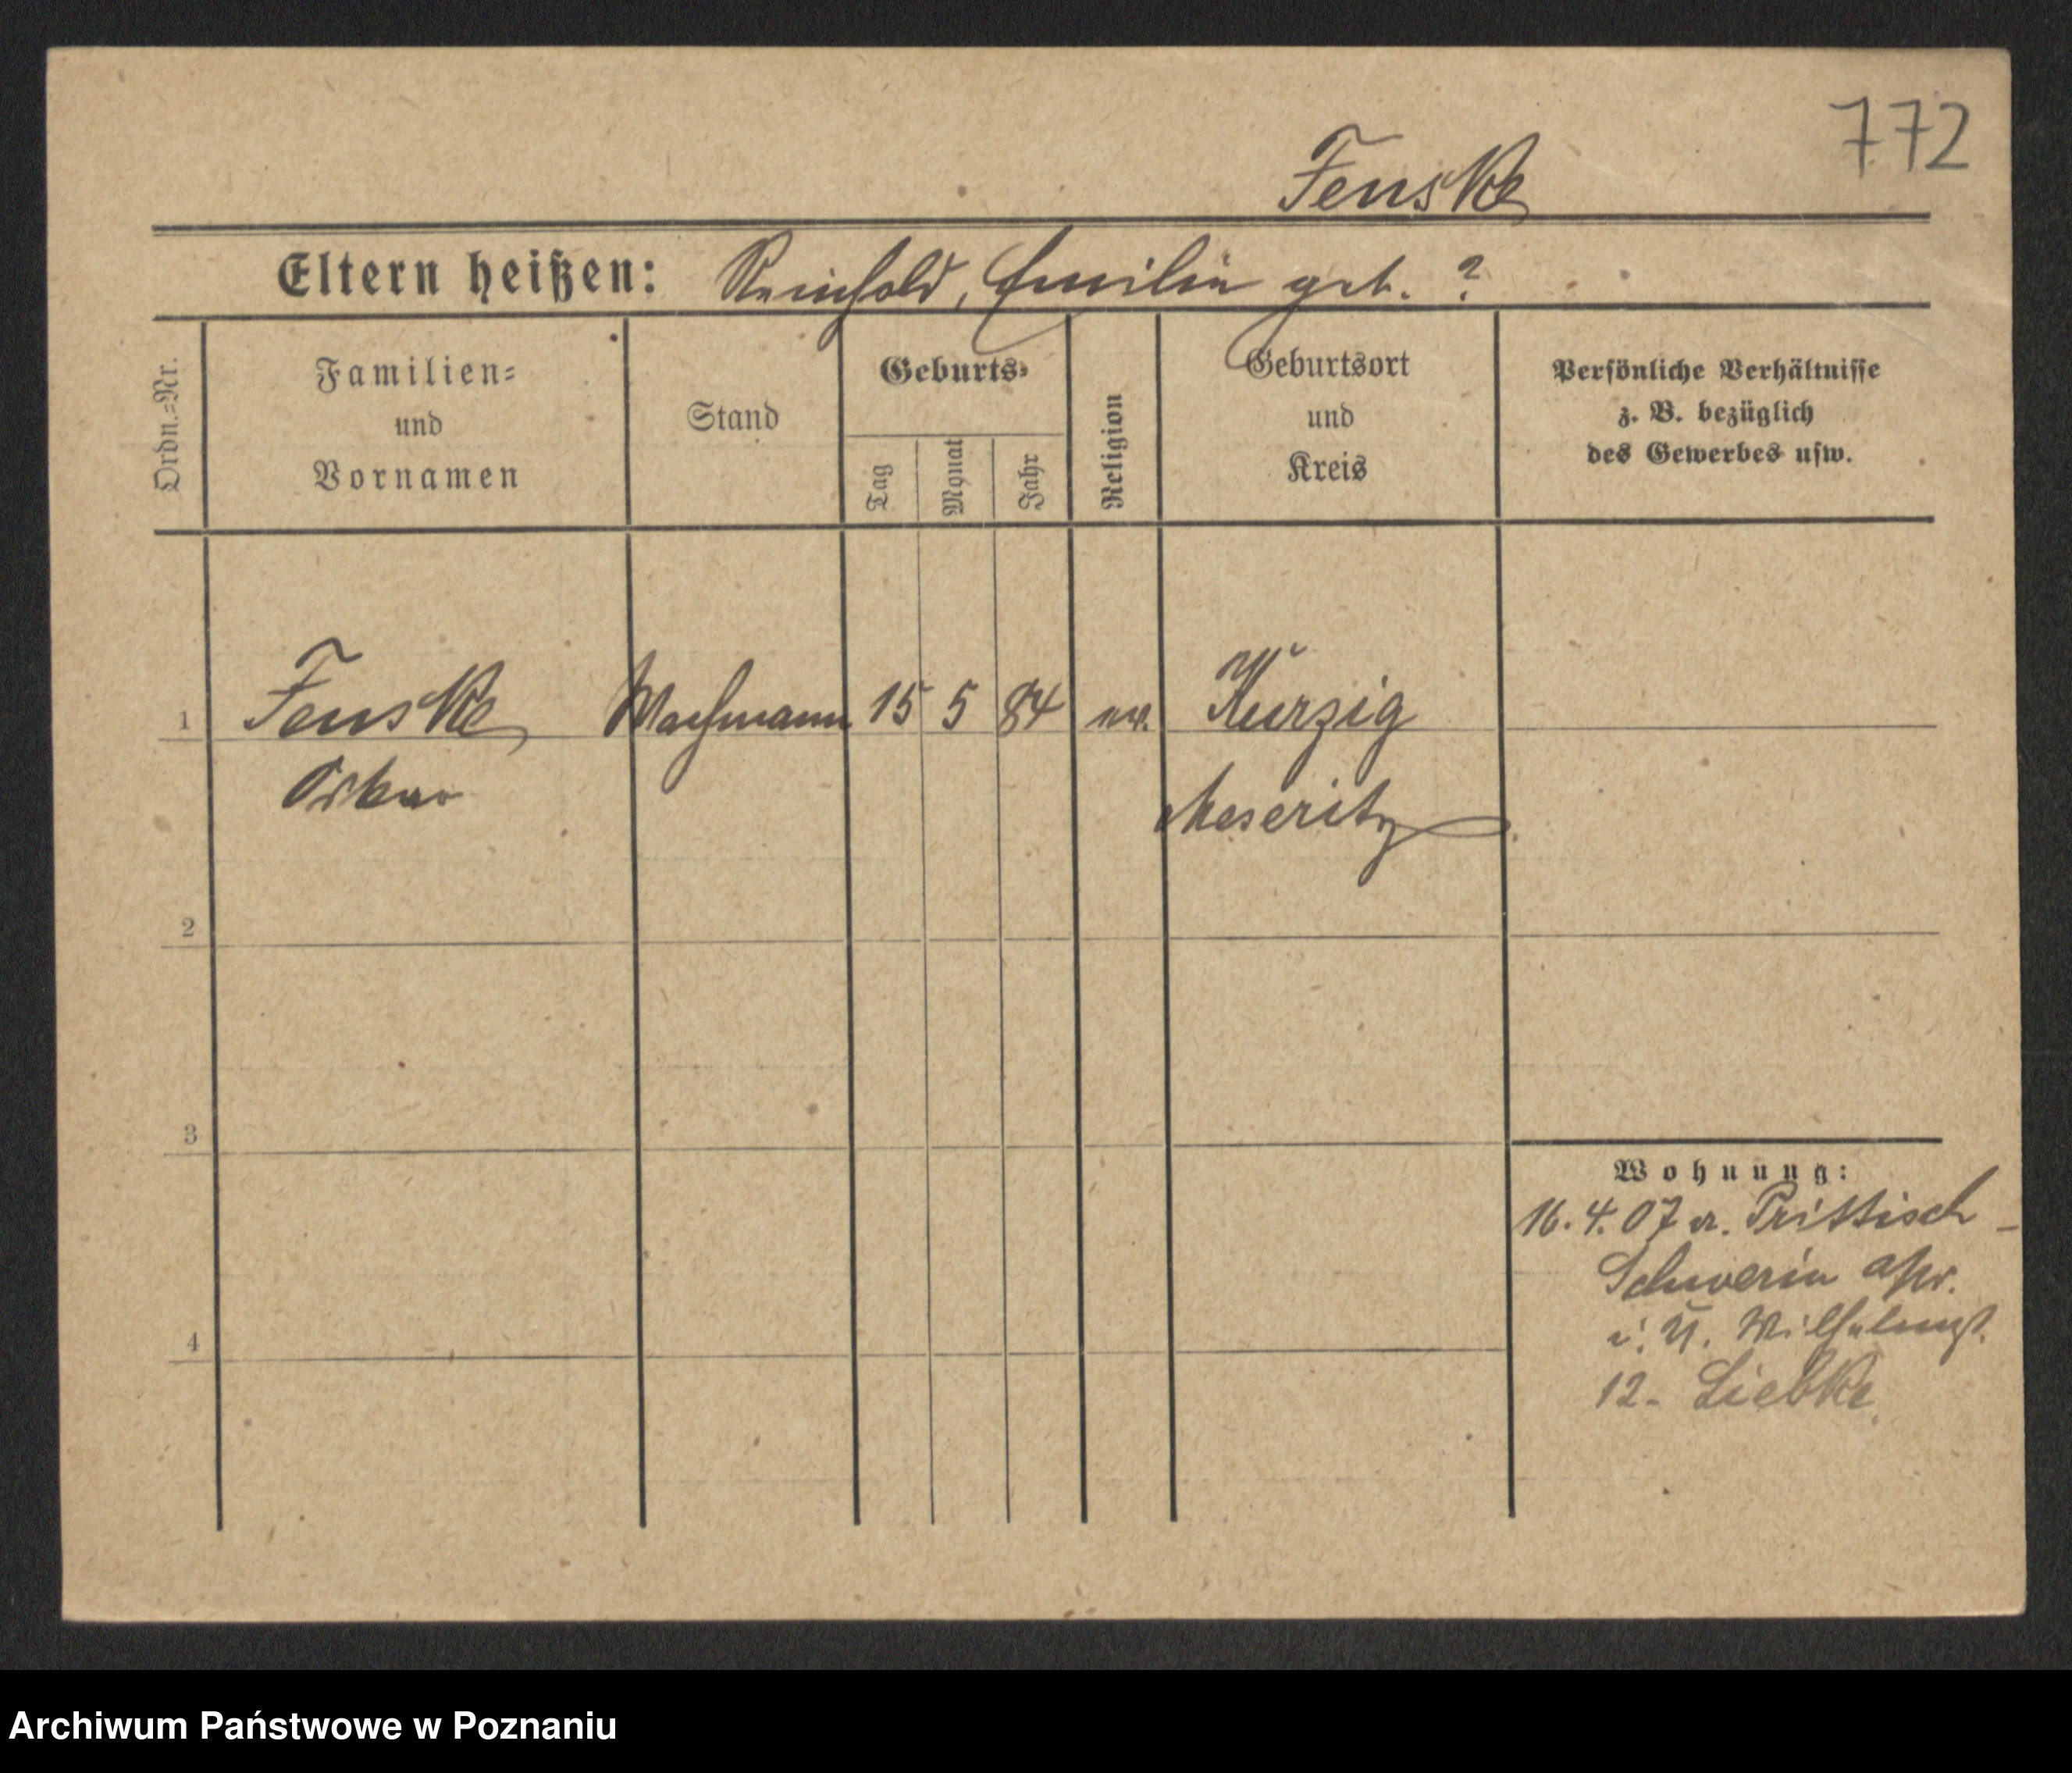 772
Fenske
Eltern heißen: Reinhold, Emilie geb. ?
Ordn.=Nr.
Familien=
und
Vornamen
Stand
Geburts=
Tag
Monat
Jahr
Religion
Geburtsort
und
Kreis
Persönliche Verhältnisse
z. B. bezüglich
des Gewerbes usw.
1 Fenske 15 5 84 ev. Kurzig
Oskar Meseritz
2
3
4
Wohnung:
16.4.07 a. Prittisch -
Schwerin
Wilhelmst.
12. Liebke
Archiwum Państwowe w Poznaniu